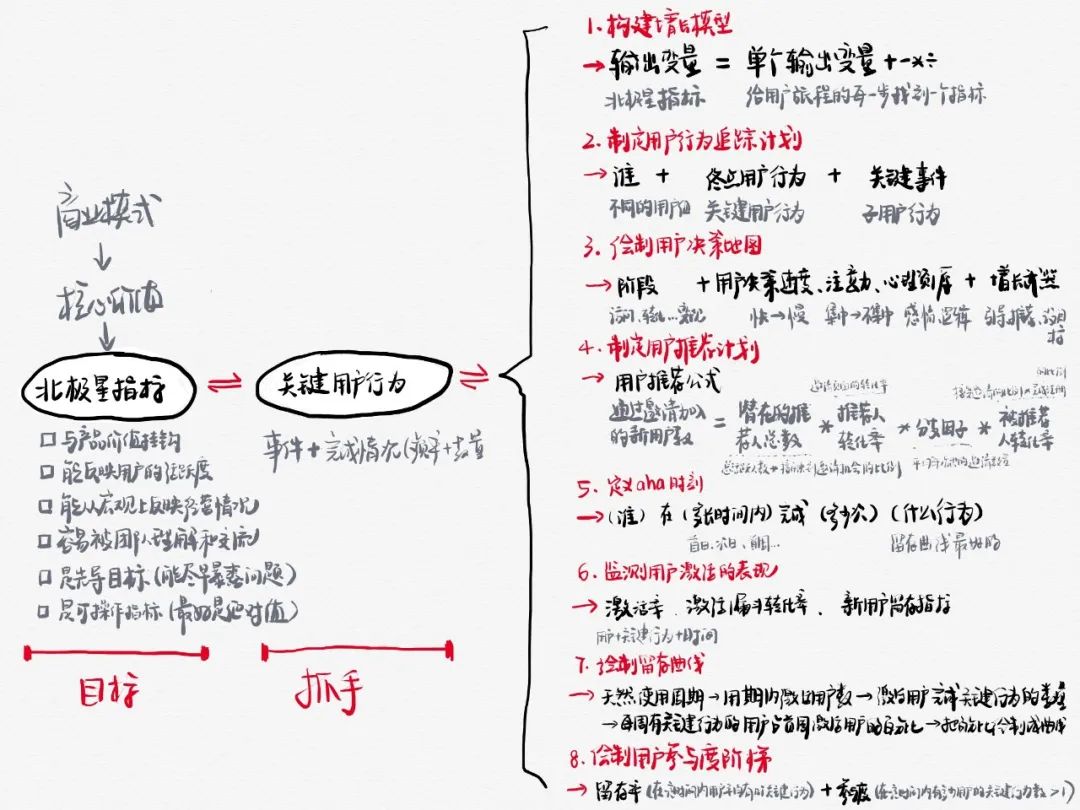 商业模式
核心价值
北极星指标
□ 与产品价值挂钩
□ 能反映用户的活跃度
□ 能从宏观上反映经营情况
□ 容易被团队理解和交流
□ 是先导目标（能尽早暴露问题）
□ 是可操作指标（最好是绝对值）
目标
关键用户行为
事件+完成情况(频率+数量
抓手
1. 构建增长模型
→ 输出变量 = 单个输出变量 +-×÷
北极星指标 给用户旅程的每一步找到一个指标
2. 制定用户行为追踪计划
→ 谁 + 终点用户行为 + 关键事件
不同的用户组 关键用户行为 子用户行为
3. 绘制用户决策地图
→ 阶段 + 用户决策速度、注意力、心理 + 增长
访问、转化… 快→慢 集中→不集中 感情 逻辑
4. 制定用户推荐计划
→ 用户推荐公式
通过邀请加入的新用户数 = 潜在的推荐人总数 * 推荐人转化率 * 分支因子 * 被推荐人转化率
5. 定义aha时刻
→ (谁) 在 (多长时间内) 完成 (多少次) (什么行为)
首日、次日、首周… 留存曲线最好的
6. 监测用户激活的表现
→ 激活率、激活漏斗转化率、新用户留存指标
用户+关键行为+时间
7. 绘制留存曲线
→ 天然使用周期 → 周期内激活用户数 → 激活用户完成关键行为的数量
→ 每周有关键行为的用户占首周激活用户的百分比 → 把百分比绘制成曲线
8. 绘制用户参与度阶梯
→ 留存率 +